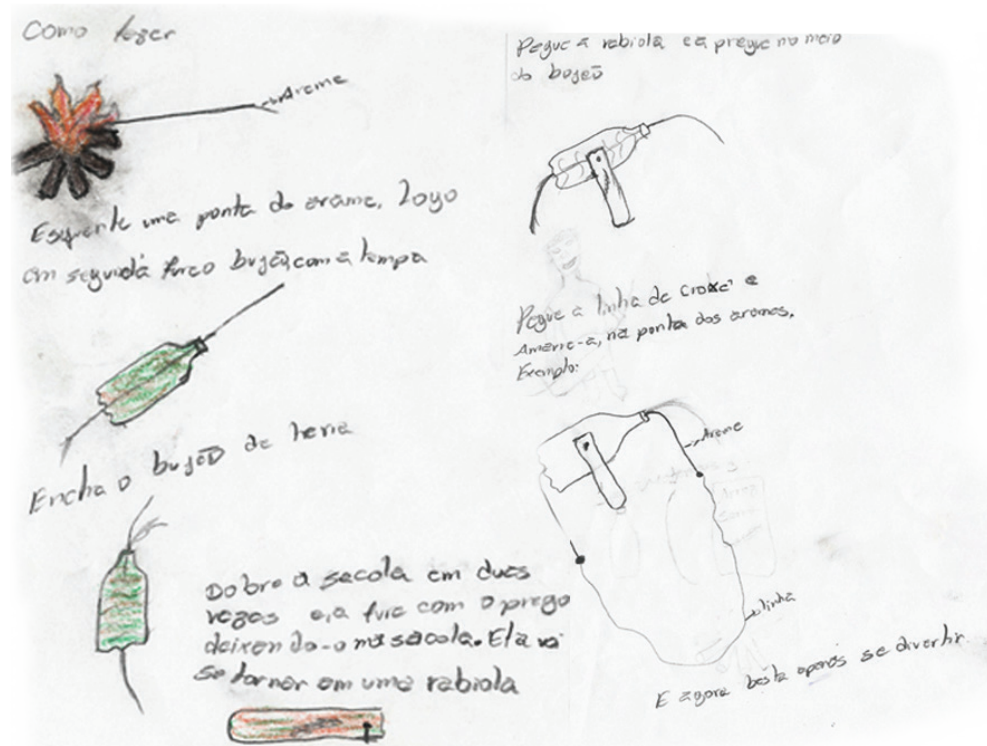 Como fazer
Arame
Esquente uma ponta do arame, Logo
em seguida furo bujão com a tempa
Encha o bujão de
Dobre a sacola em duas
vezes e a fure com o prego
deixando-o na sacola. Ela vai
se tornar em uma rabiola
Pegue a rabiola e a pregue no meio
do bujão
Pegue a linha de croxê e
Amarre-a, na ponta dos arames.
Exemplo:
Arame
linha
E agora basta apenas se divertir.